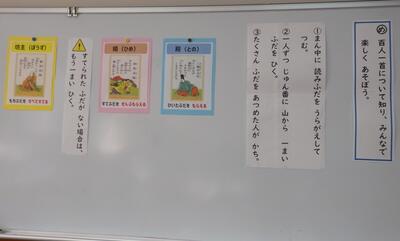 め 百人一首について知り、みんなで
楽しく あそぼう。
①まん中に 読みふだを うらがえして
つむ。
②一人ずつ じゅん番に 山から 一まい
ふだを ひく。
③たくさん ふだを あつめた人が かち。
殿(との)
ひいたふだを もらえる
姫(ひめ)
すてふだを ぜんぶもらえる
すてられた ふだが ない場合は、
もう一まい ひく。
坊主(ぼうず)
もちふだを すべてすてる